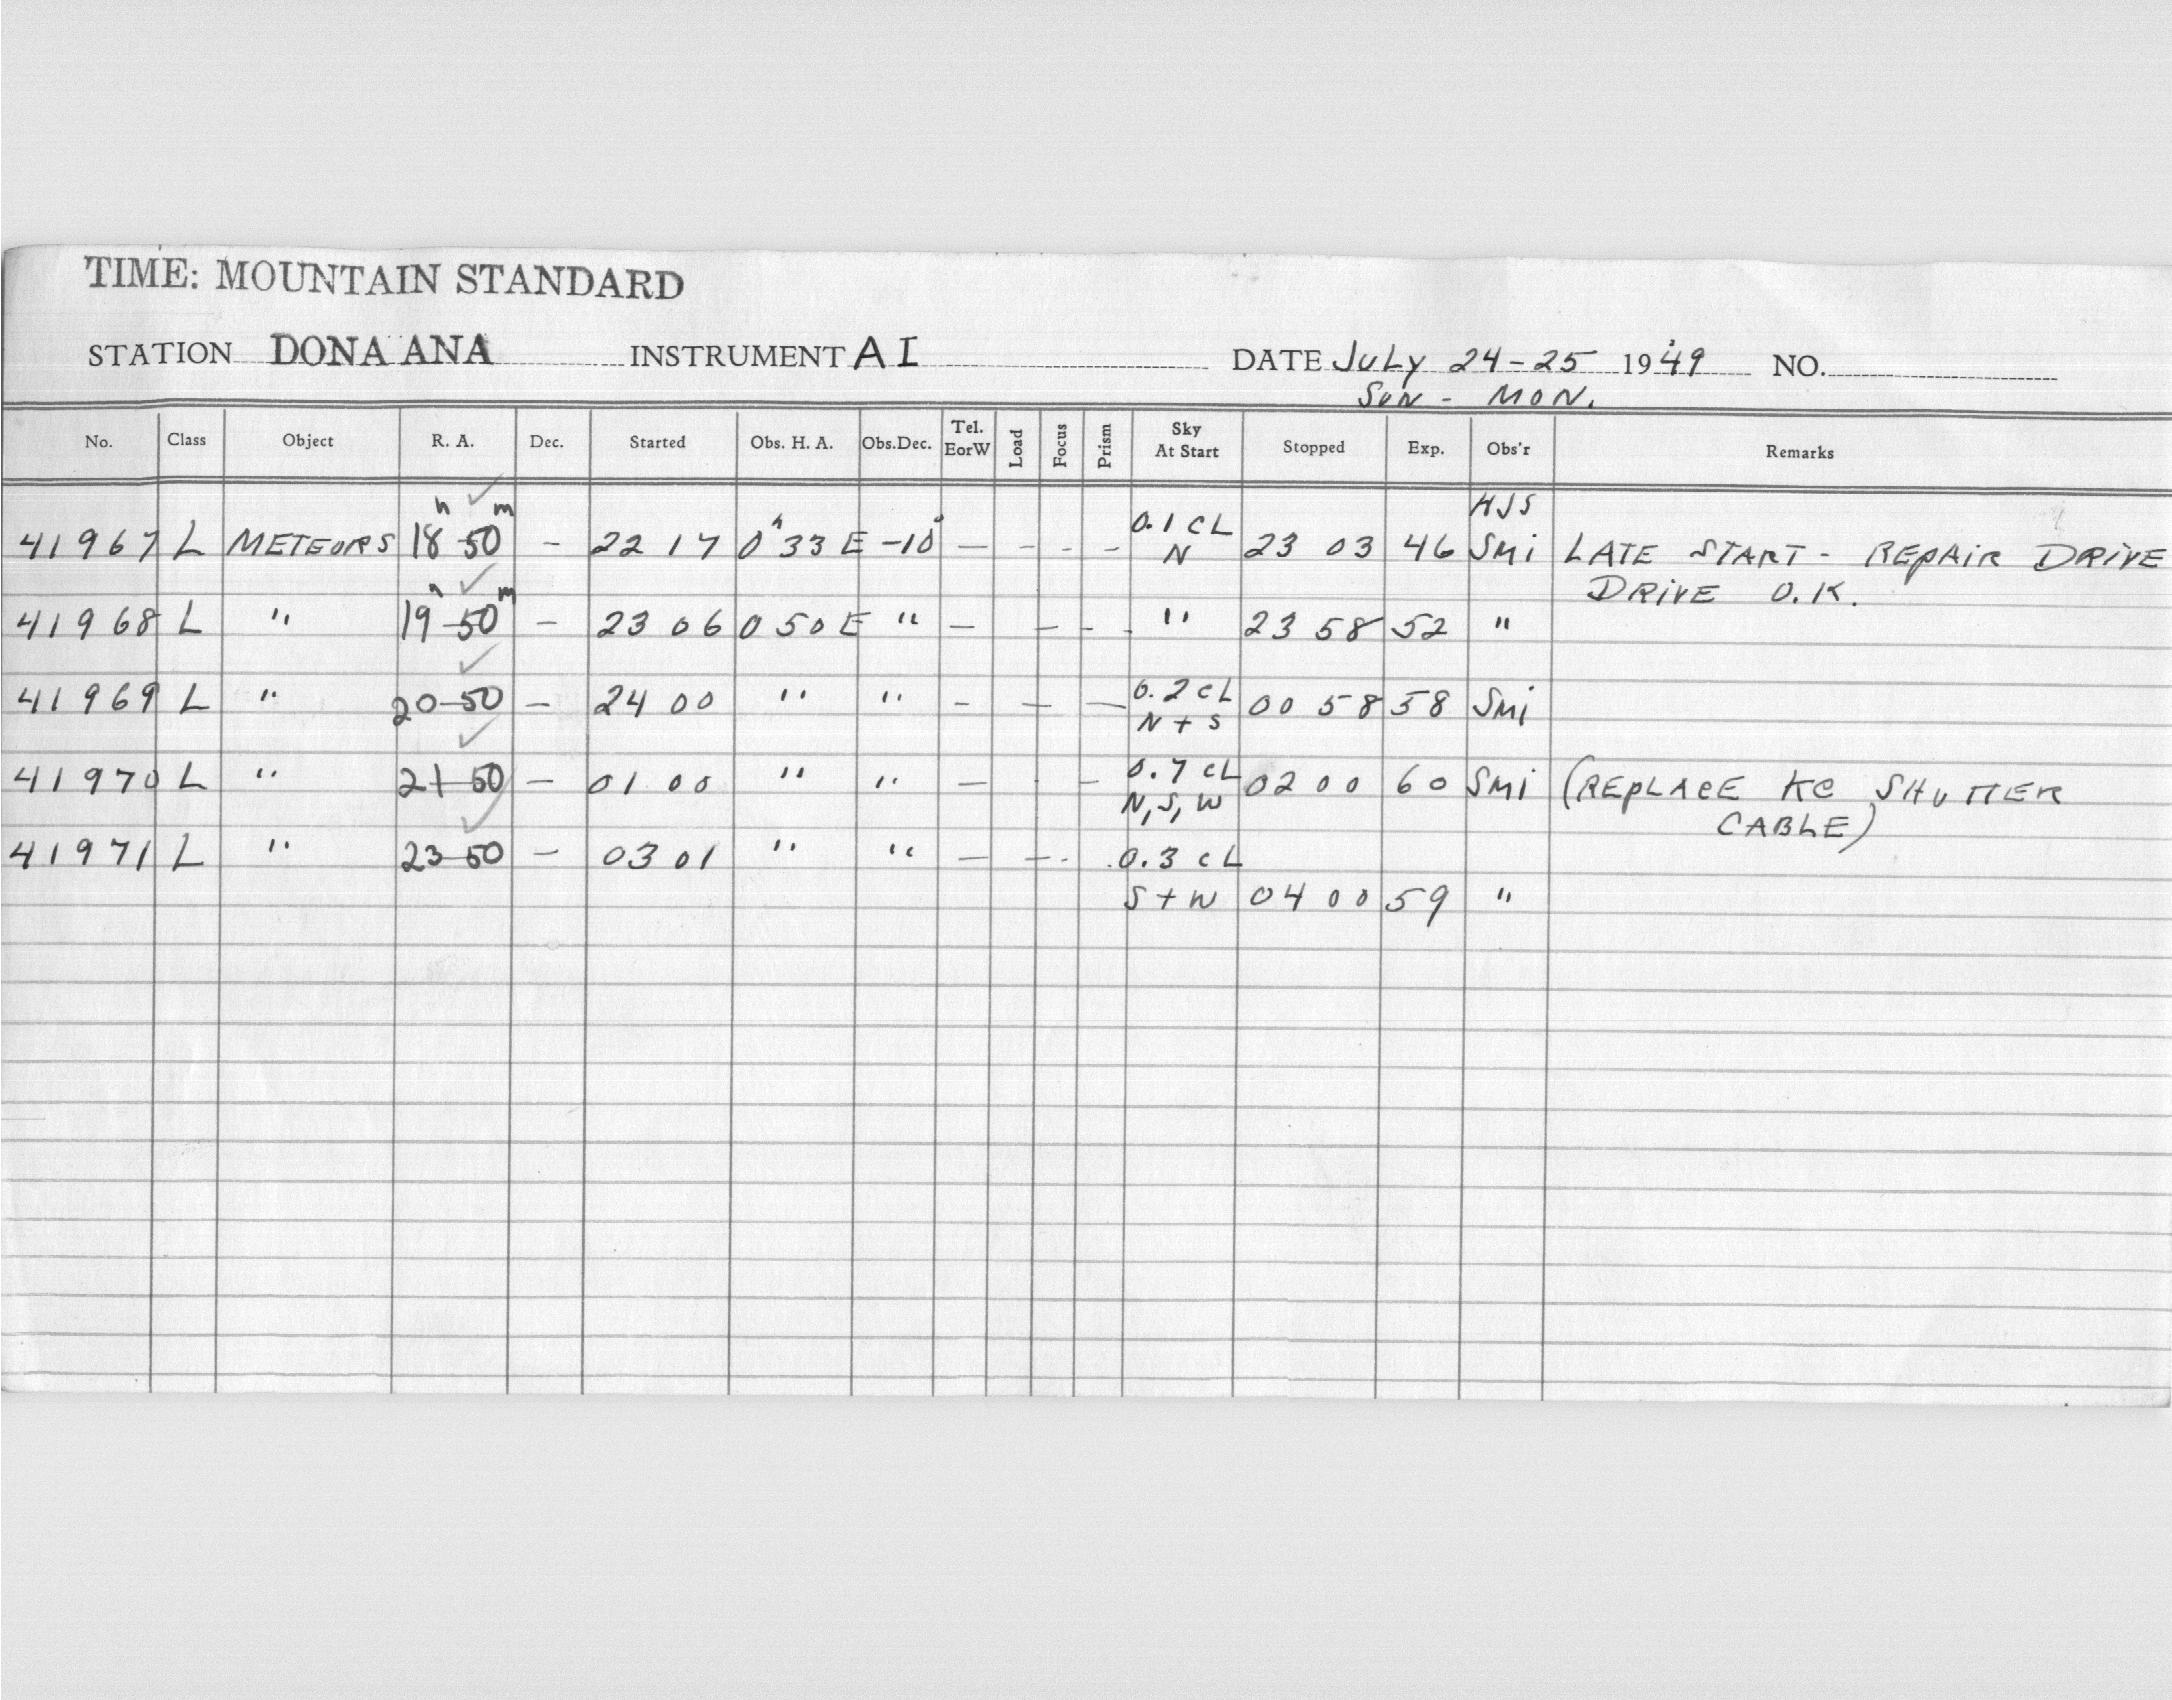 TIME: MOUNTAIN STANDARD
STATION DONA ANA INSTRUMENT A I DATE JULY 24-25 1949 NO.
SUN - MON.
No. Class Object R. A. Dec. Started Obs. H. A. Obs.Dec. Tel. EorW Load Focus Prism Sky At Start Stopped Exp. Obs'r Remarks
h m HJS
41967 L METEORS 18 50 - 22 17 0h 33 E -10° — - - - 0.1 CL N 23 03 46 Smi LATE START - REPAIR DRIVE
h m DRIVE O.K.
41968 L " 19 50 - 23 06 0 50 E " — — - - " 23 58 52 "
41969 L " 20 50 - 24 00 " " - — — 0.2 CL N + S 00 58 58 Smi
41970 L " 21 50 - 01 00 " " — - - 0.7 CL N, S, W 02 00 60 Smi (REPLACE KC SHUTTER
CABLE)
41971 L " 23 50 - 03 01 " " — — - 0.3 CL
S + W 04 00 59 "